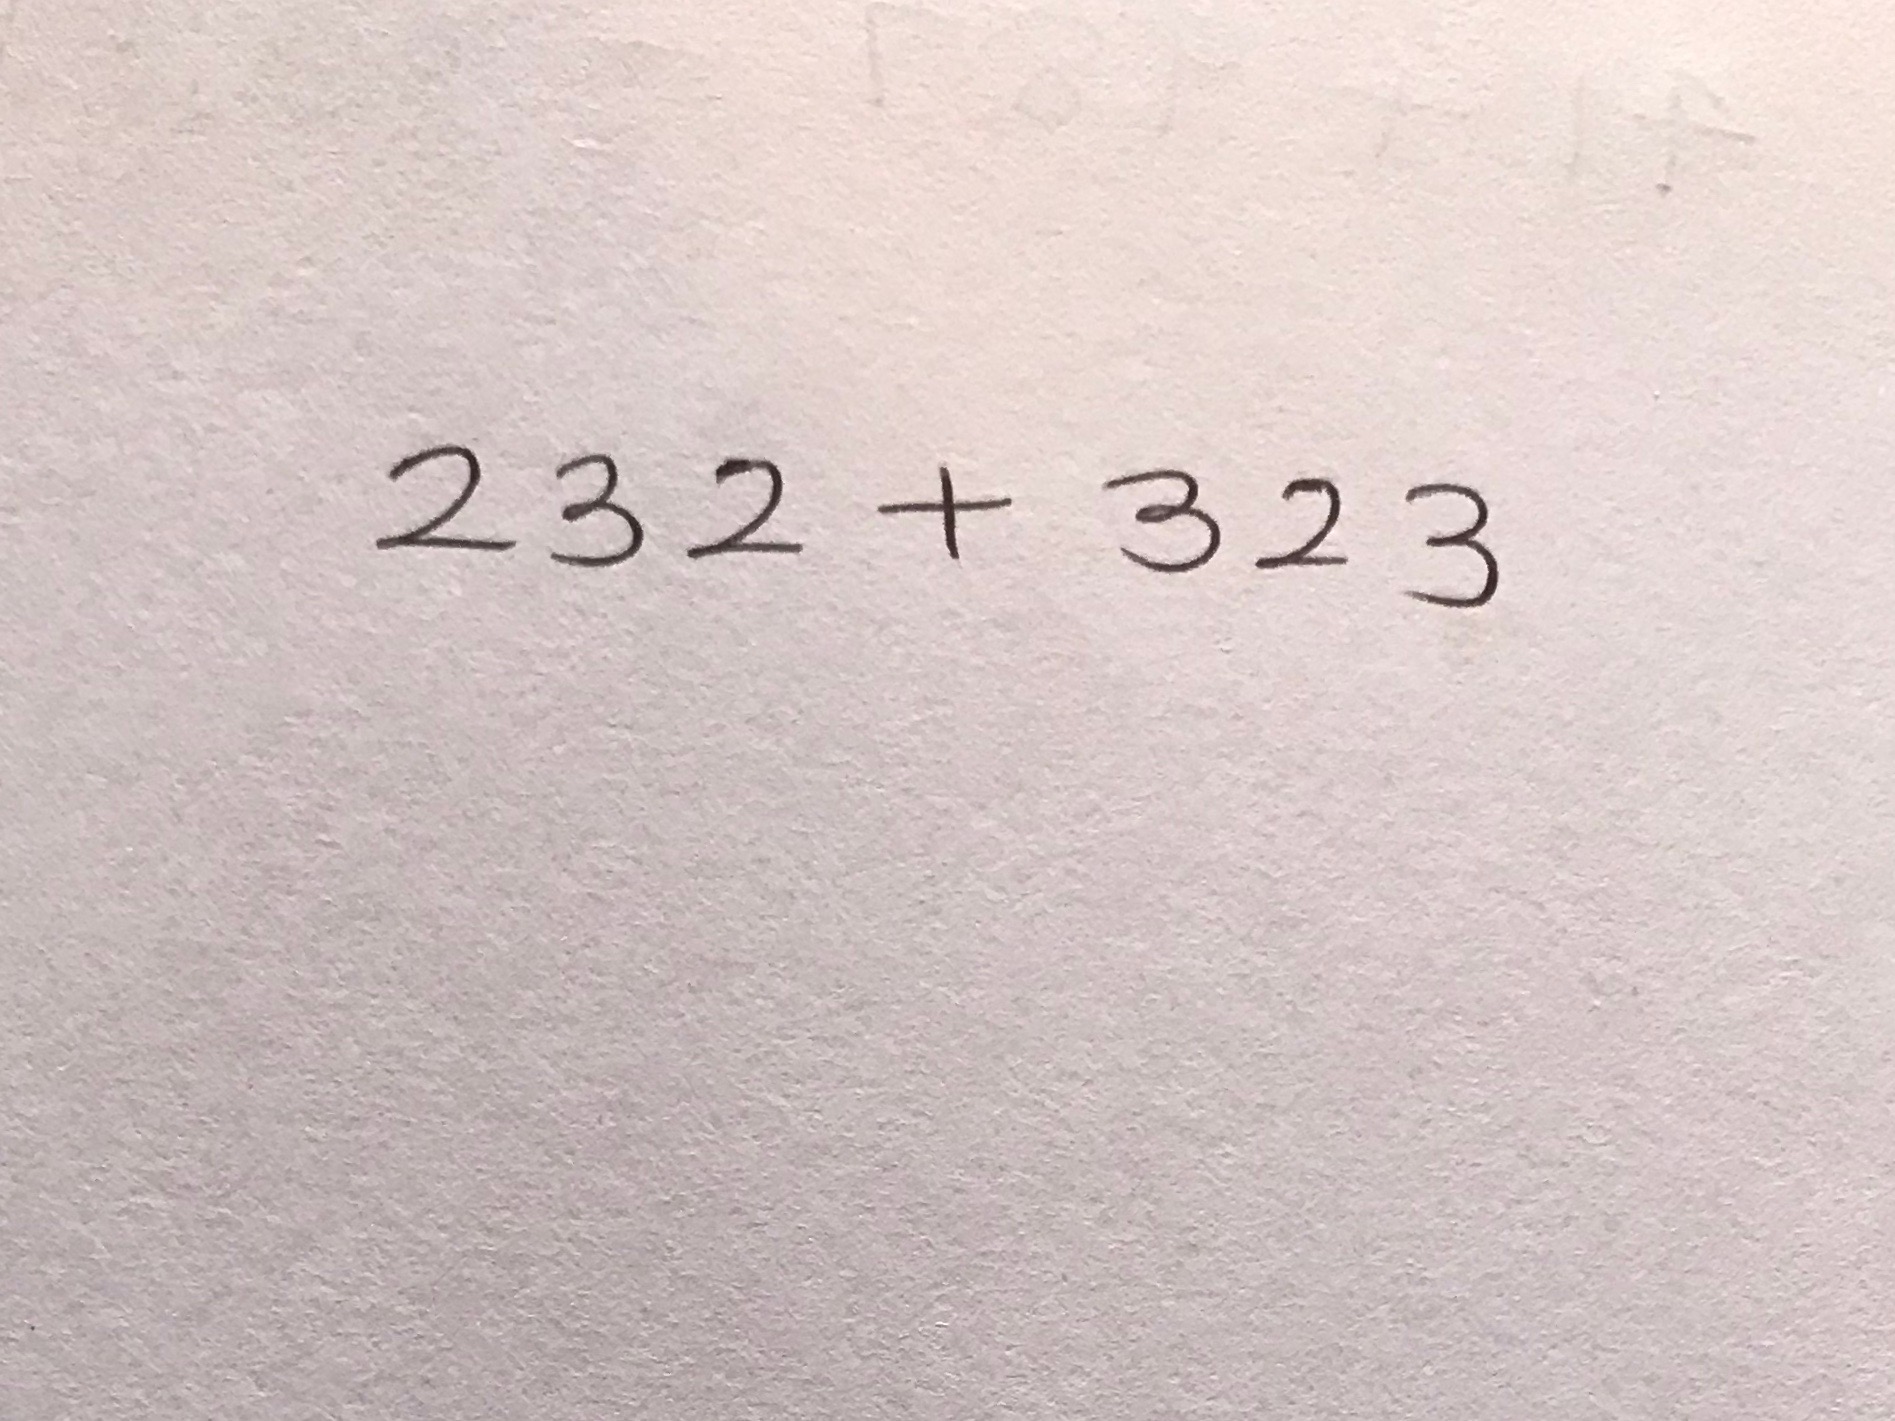 232 + 323